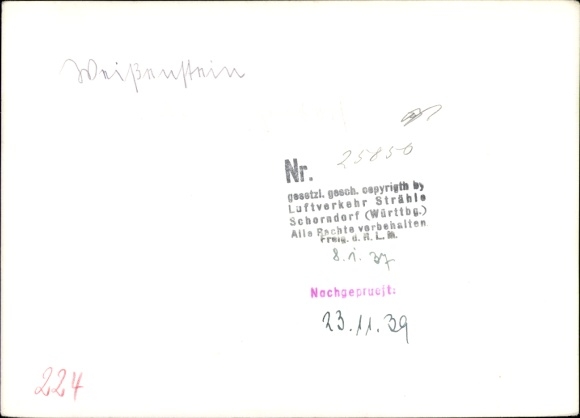 Weißenstein
Nr. 25850
gesetzl. gesch. copyrigth by
Luftverkehr Strähle
Schorndorf (Württbg.)
Alle Rechte vorbehalten
Freig. d. R. L. M.
8. 1. 37
Nochgeprueft:
23.11.39
224